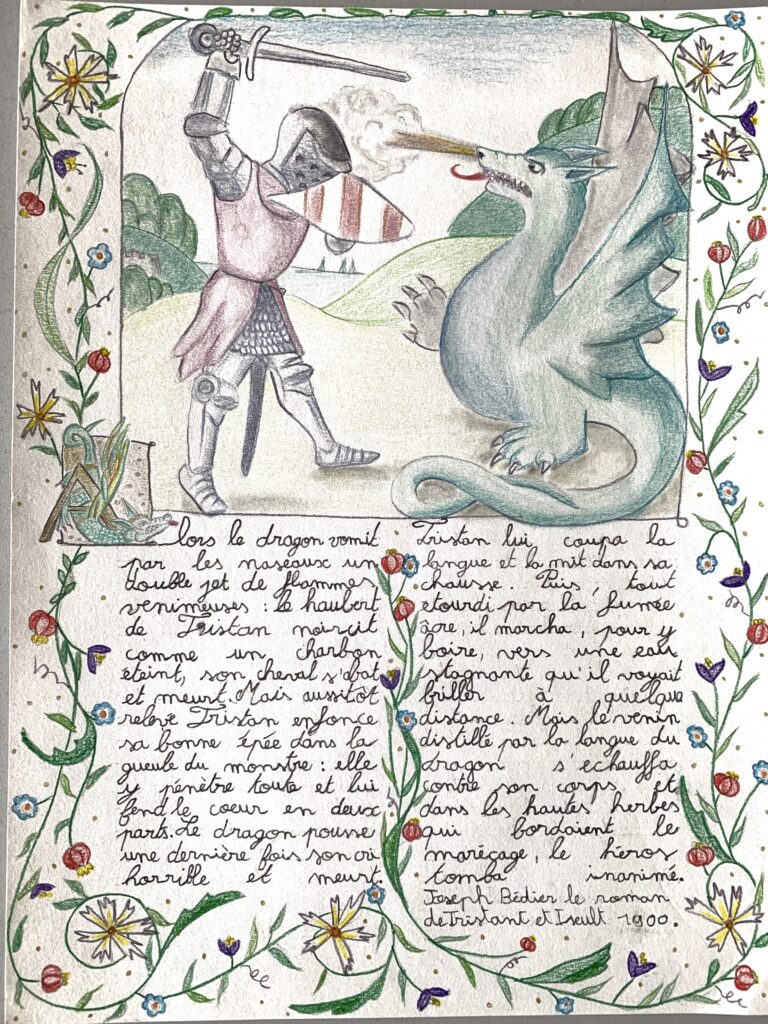 Alors le dragon vomit
par les naseaux un
double jet de flammes
venimeuses : le haubert
de Tristan noircit
comme un charbon
éteint, son cheval s'abat
et meurt. Mais aussitôt
relevé Tristan enfonce
sa bonne épée dans la
gueule du monstre : elle
y pénètre toute et lui
fend le coeur en deux
parts. Le dragon pousse
une dernière fois son cri
horrible et meurt.
Tristan lui coupa la
langue et la mit dans sa
chausse. Puis, tout
etourdi par la fumée
âcre, il marcha, pour y
boire, vers une eau
stagnante qu'il voyait
briller à quelque
distance. Mais le venin
distillé par la langue du
dragon s'échauffa
contre son corps et
dans les hautes herbes
qui bordaient le
mareçage, le héros
tomba inanimé.
Joseph Bédier le roman
de Tristant et Iseult 1900.